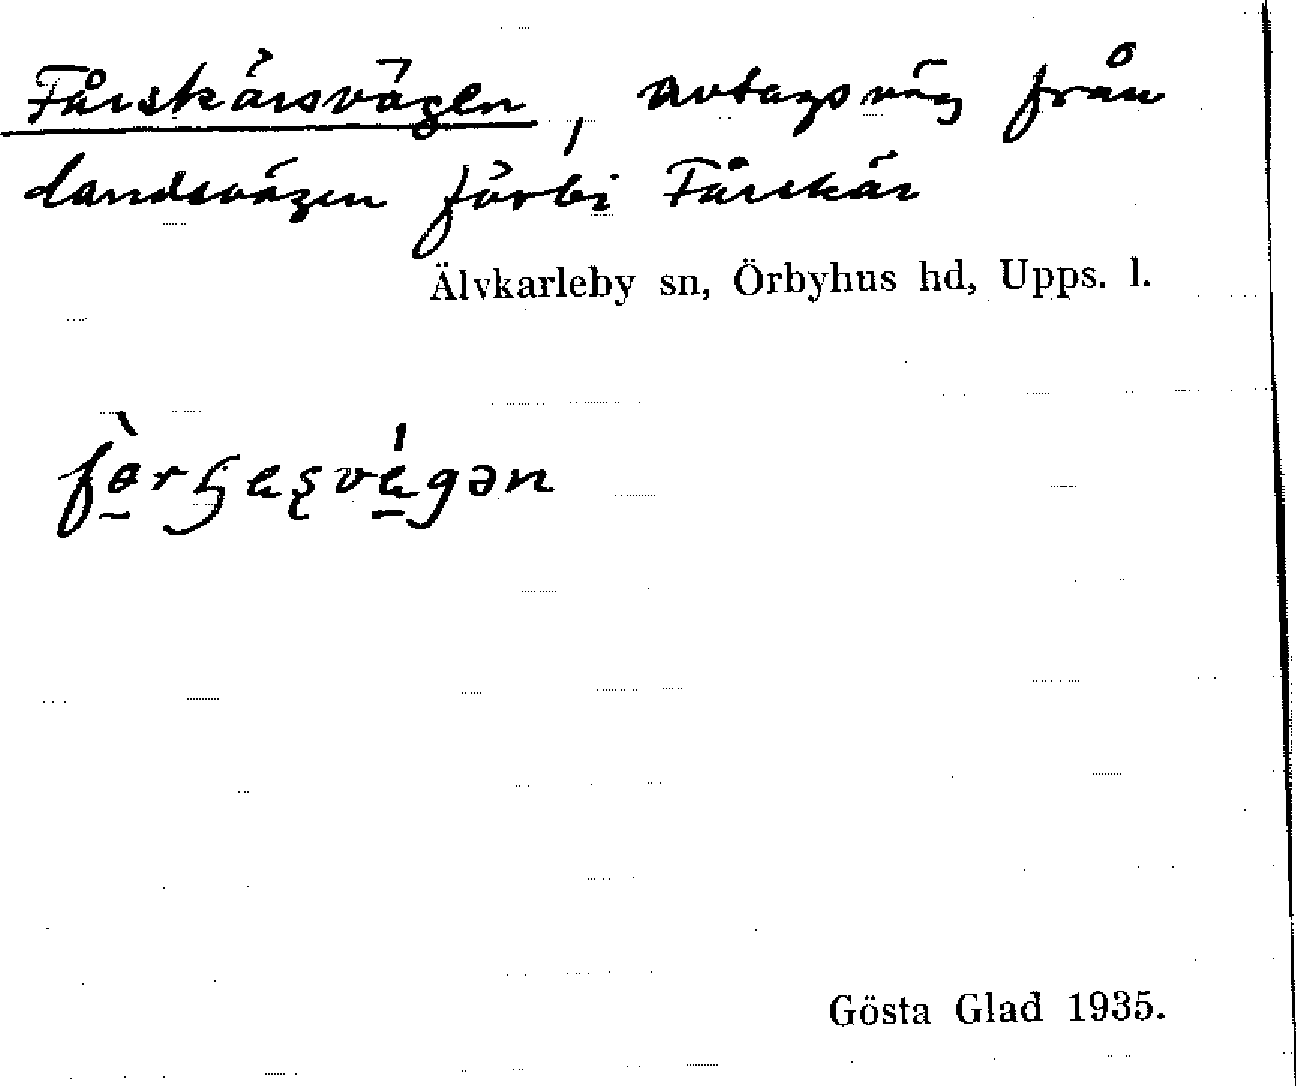 Fårskärsvägen, avtagsväg från
landsvägen förbi Fårskär
Älvkarleby sn, Örbyhus hd, Upps. l.
Gösta Glad 1935.